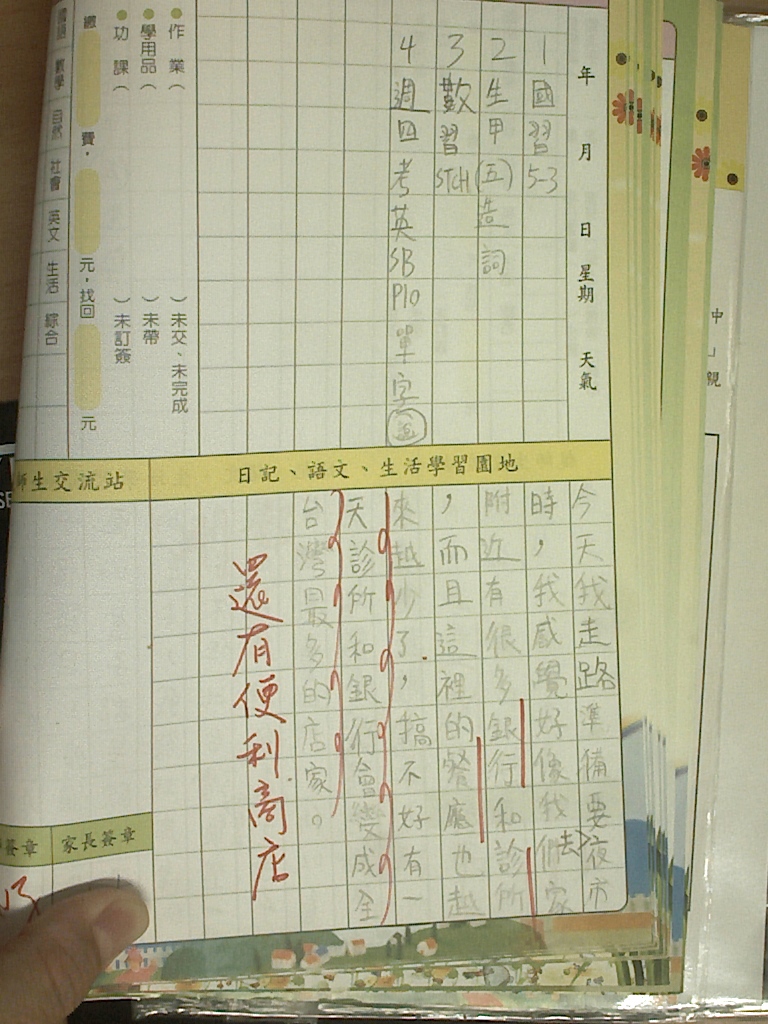 年 月 日 星期 天氣
1 國習 5-3
2 生甲(五)造詞
3 數習 5TCH
4 週四考英SB P10 單字
●作業( )未交、未完成
●學用品( )未帶
●功課( )未訂簽
繳 費, 元,找回 元
國語 數學 自然 社會 英文 生活 綜合
日記、語文、生活學習園地
今天我走路準備要去夜市
時,我感覺好像我們家
附近有很多銀行和診所
,而且這裡的餐廳也越
來越少了,搞不好有一
天診所和銀行會變成全
台灣最多的店家。
還有便利商店
師生交流站
家長簽章
簽章
中
」
親